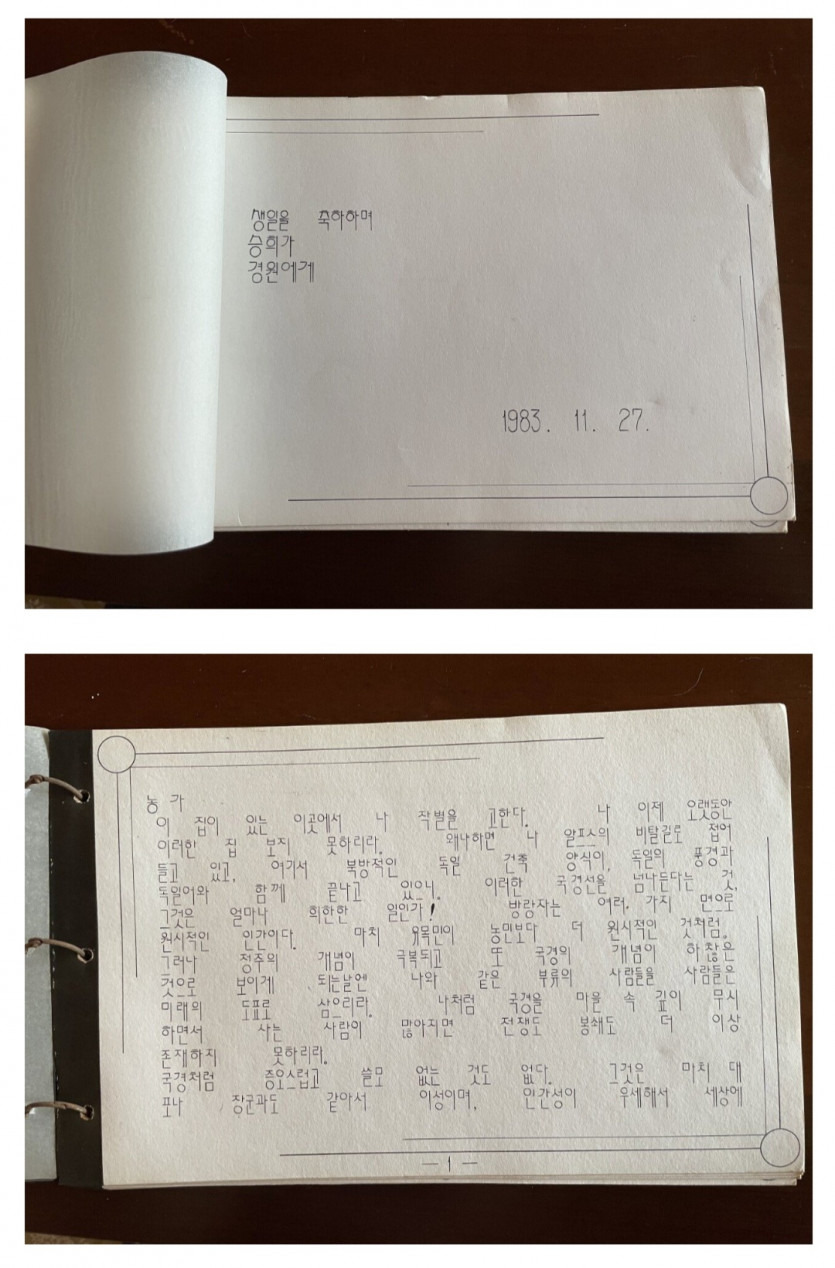 생일을 축하하며
승희가
경원에게
1983. 11. 27.
농 가
이 집이 있는 이곳에서 나 작별을 고한다. 나 이제 오랫동안
이러한 집 보지 못하리라. 왜냐하면 나 알프스의 비탈길로 접어
들고 있고, 여기서 북방적인 독일 건축 양식이, 독일의 풍경과
독일어와 함께 끝나고 있으니. 이러한 국경선을 넘나든다는 것,
그것은 얼마나 희한한 일인가! 방랑자는 여러, 가지 면으로
원시적인 인간이다. 마치 유목민이 농민보다 더 원시적인 것처럼.
그러나 정주의 개념이 극복되고 또 국경의 개념이 하찮은
것으로 보이게 되는날엔 나와 같은 부류의 사람들을 사람들은
미래의 도표로 삼으리라. 나처럼 국경을 마음 속 깊이 무시
하면서 사는 사람이 많아지면 전쟁도 봉쇄도 더 이상
존재하지 못하리라.
국경처럼 증오스럽고 쓸모 없는 것도 없다. 그것은 마치 대
포나 장군과도 같아서 이성이며, 인간성이 우세해서 세상에
— 1 —